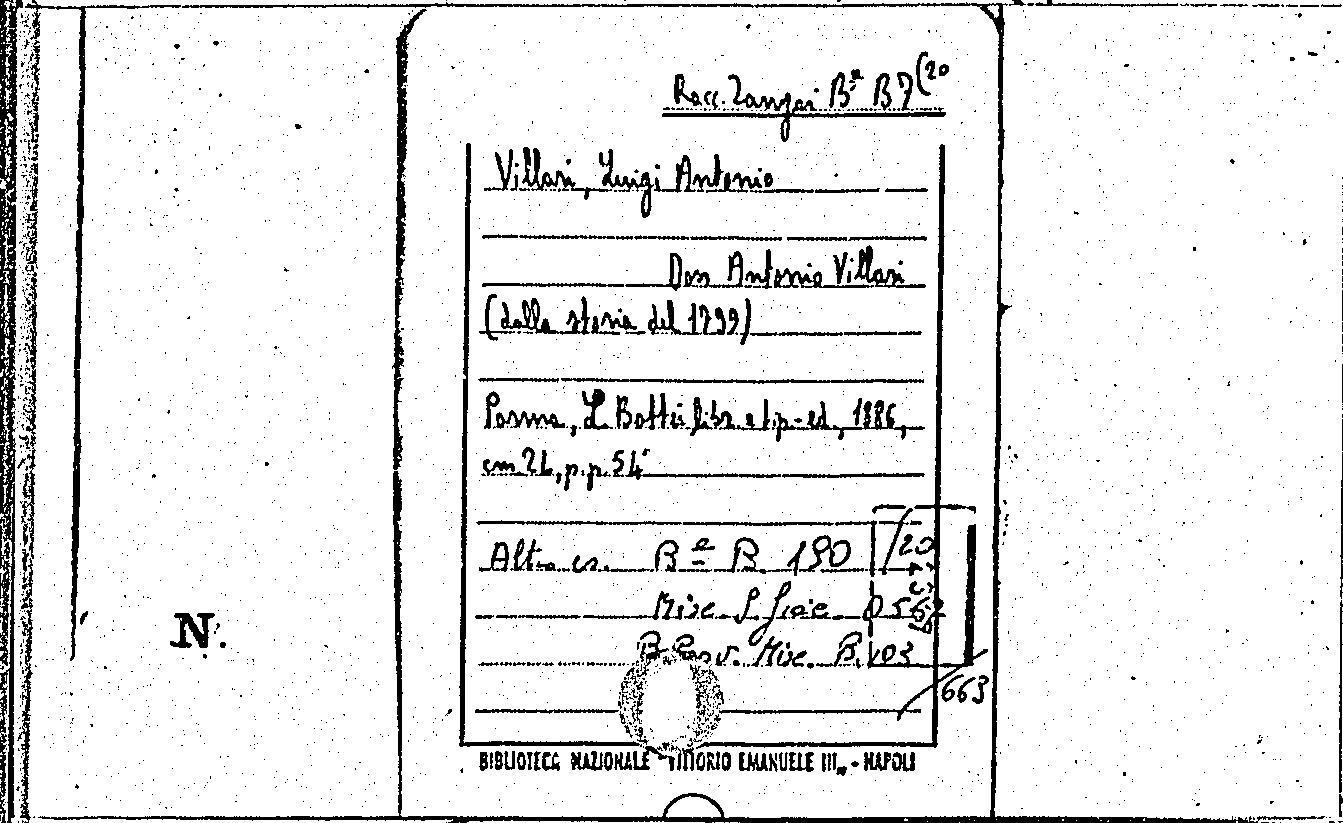 Racc. Zangari Bª B7(20
Villari, Luigi Antonio
Don Antonio Villari
(dalla storia del 1799)
Parma, L. Battei libr. e tip-ed., 1886,
cm. 24, p.p. 54
Altro es. Bª B. 190 /20
Misc.
Misc. B. 103
/663
N.
BIBLIOTECA NAZIONALE "VITTORIO EMANUELE III" - NAPOLI